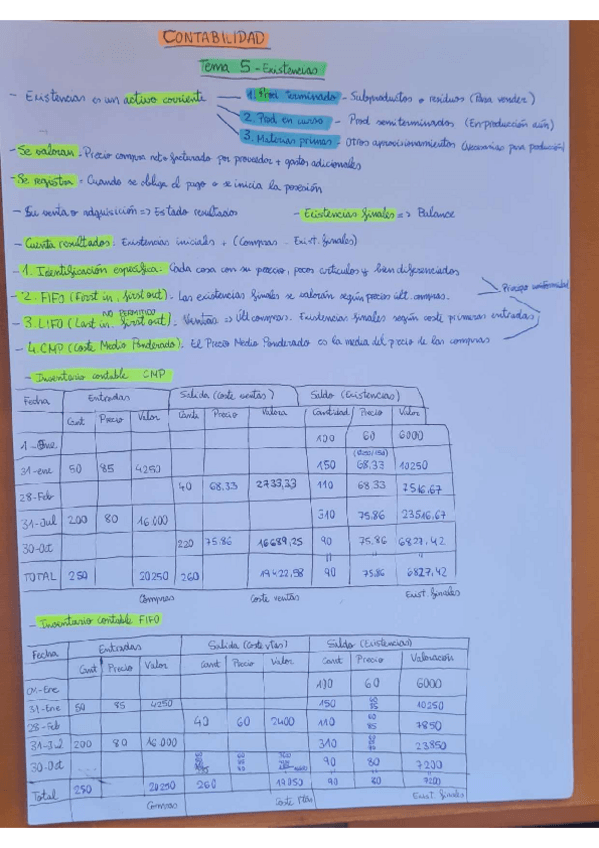 CONTABILIDAD
Tema 5 - Existencias
- Existencias es un activo corriente
1. Prod. Terminado - Subproductos o residuos (Para vender)
2. Prod. en curso - Prod semiterminados (En producción aún)
3. Materias primas - Otros aprovisionamientos (Necesarias para producción)
- Se valoran - Precio compra neto facturado por proveedor + gastos adicionales
- Se registra - Cuando se obliga el pago o se inicia la posesión
- Su venta o adquisición => Estado resultados - Existencias finales => Balance
- Cuenta resultados: Existencias iniciales + (Compras - Exist. finales)
- 1. Identificación específica. Cada cosa con su precio, pocos artículos y bien diferenciados
- 2. FIFO (First in, first out). Las existencias finales se valorán según precios últ. compras.
Principio uniformidad
NO PERMITIDO
- 3. LIFO (Last in, first out). Ventas => Últ compras. Existencias finales según coste primeras entradas
- 4. CMP (Coste Medio Ponderado). El Precio Medio Ponderado es la media del precio de las compras
- Inventario contable CMP
Fecha Entradas Salida (Coste ventas) Saldo (Existencias)
Cant Precio Valor Cante Precio Valora Cantidad Precio Valor
1-Ene 100 60 6000
31-ene 50 85 4250 150 68.33 10250
28-Feb 40 68.33 2733,33 110 68.33 7516,67
31-Jul 200 80 16.000 310 75.86 23516,67
30-Oct 220 75.86 16689,25 90 75.86 6827,42
TOTAL 250 20250 260 19422,58 90 75.86 6827,42
Compras Coste ventas Exist finales
- Inventario contable FIFO
Fecha Entradas Salida (Coste vtas) Saldo (Existencias)
Cant Precio Valor Cant Precio Valor Cant Precio Valoración
01-Ene 100 60 6000
31-Ene 50 85 4250 150 10250
28-Feb 40 60 2400 110 7850
31-Jul 200 80 16.000 310 23850
30-Oct 90 80 7200
Total 250 20250 260 19050 90 80 7200
Compras Coste Vtas Exist finales